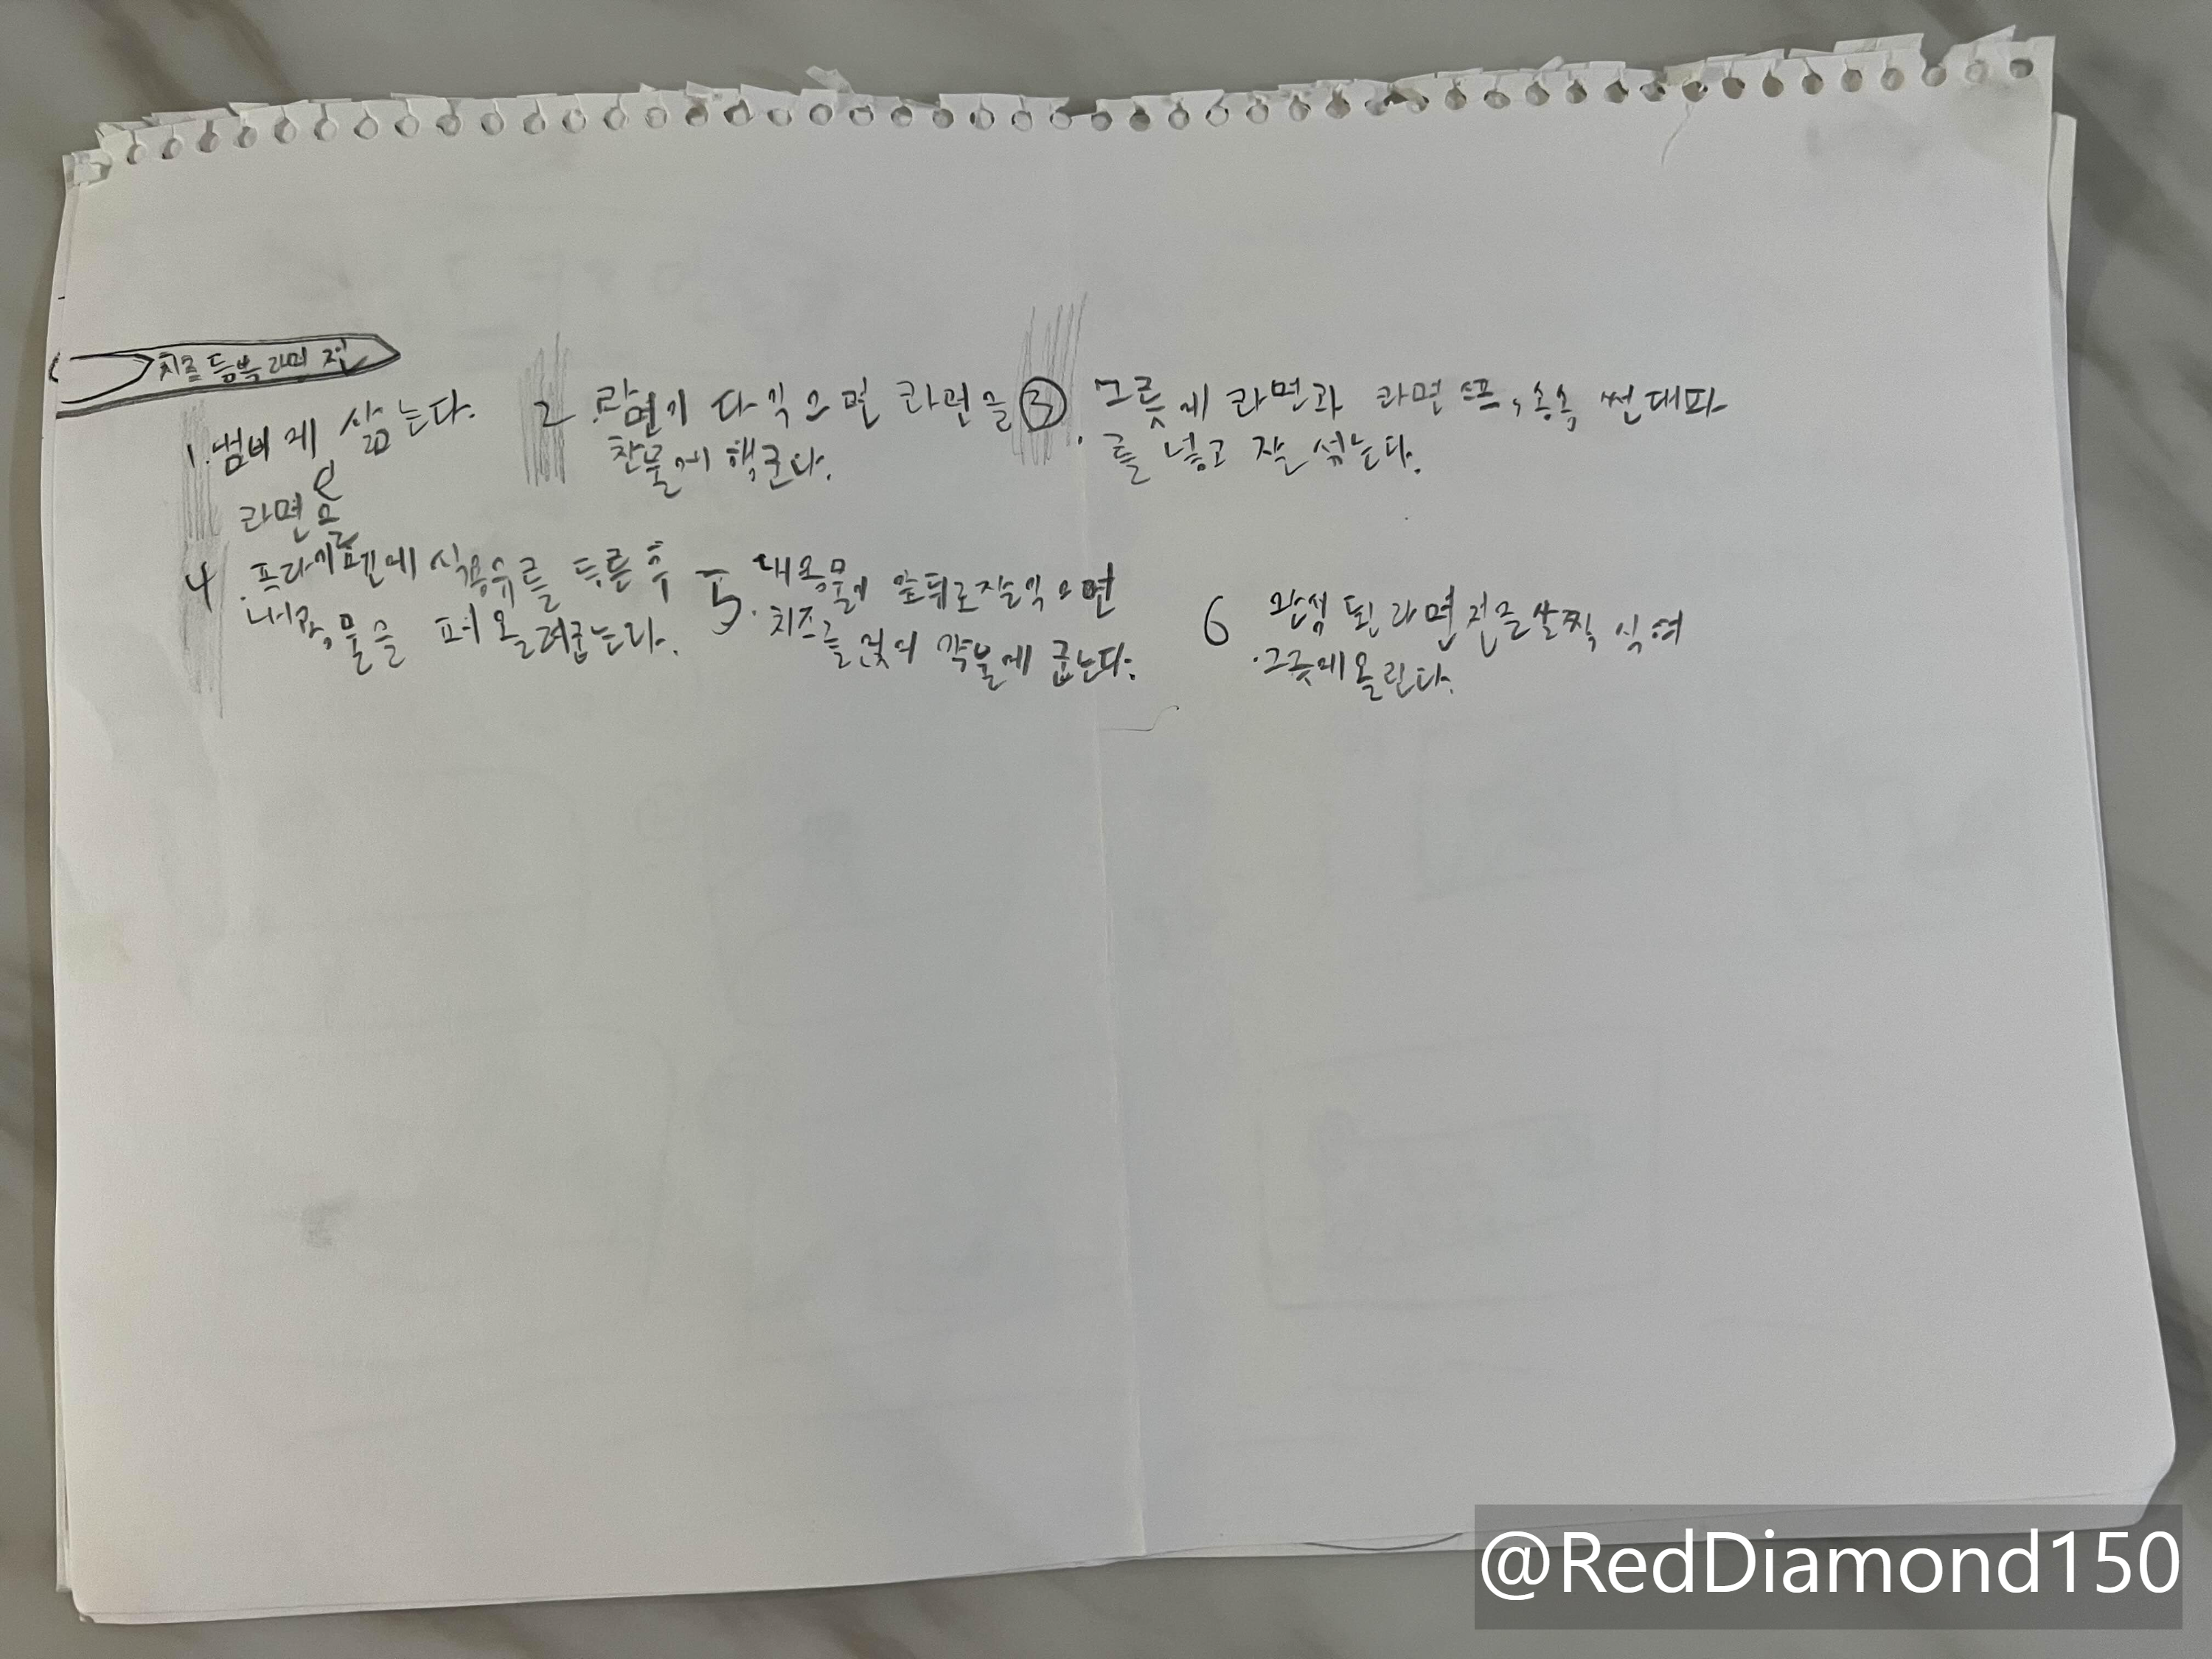 치즈 듬뿍 라면 전
1. 냄비에 삶는다.
라면을
2. 라면이 다 익으면 라면을
찬물에 헹군다.
3. 그릇에 라면과 라면 스프, 송송 썬 대파
를 넣고 잘 섞는다.
4. 프라이팬에 식용유를 두른 후
내용물을 펴 올려굽는다.
5. 내용물이 앞뒤로 잘 익으면
치즈를 얹어 약불에 굽는다.
6 완성 된 라면전을 살짝 식혀
그릇에 올린다.
@RedDiamond150